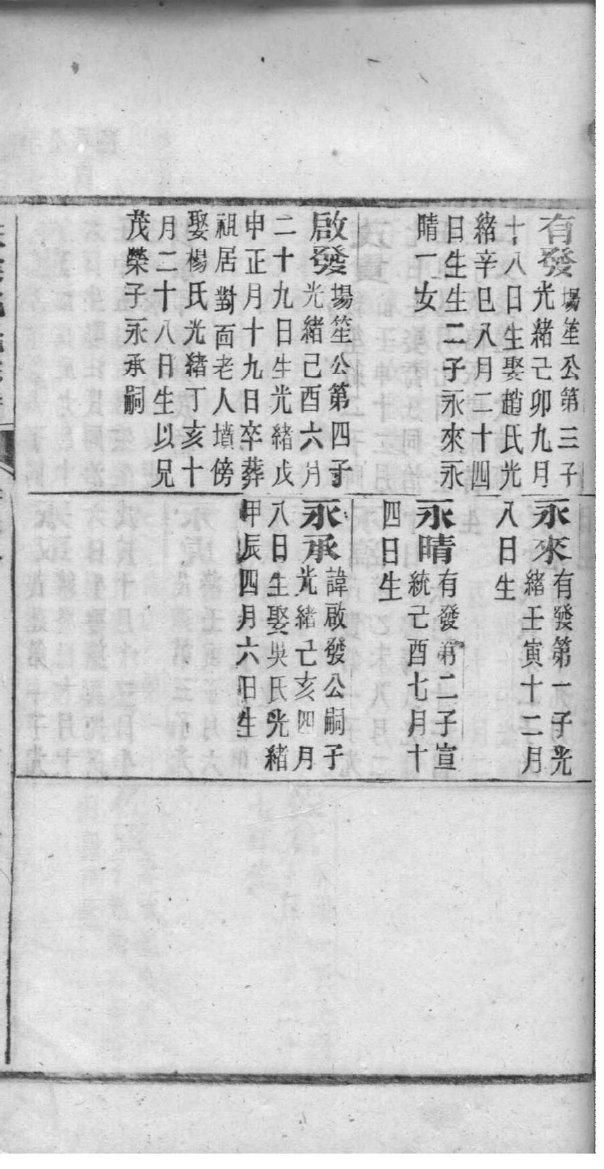 有發 場笙公第三子
光緒己卯九月
十八日生娶趙氏光
緒辛巳八月二十四
日生生二子永來永
晴一女
啟發 場笙公第四子
光緒己酉六月
二十九日生光緒戊
申正月十九日卒葬
祖居對面老人墳傍
娶楊氏光緒丁亥十
月二十八日生以兄
茂榮子永承嗣
永來 有發第一子光
緒壬寅十二月
八日生
永晴 有發第二子宣
統己酉七月十
四日生
永承 諱啟發公嗣子
光緒己亥四月
八日生娶吳氏光緒
甲辰四月六日生